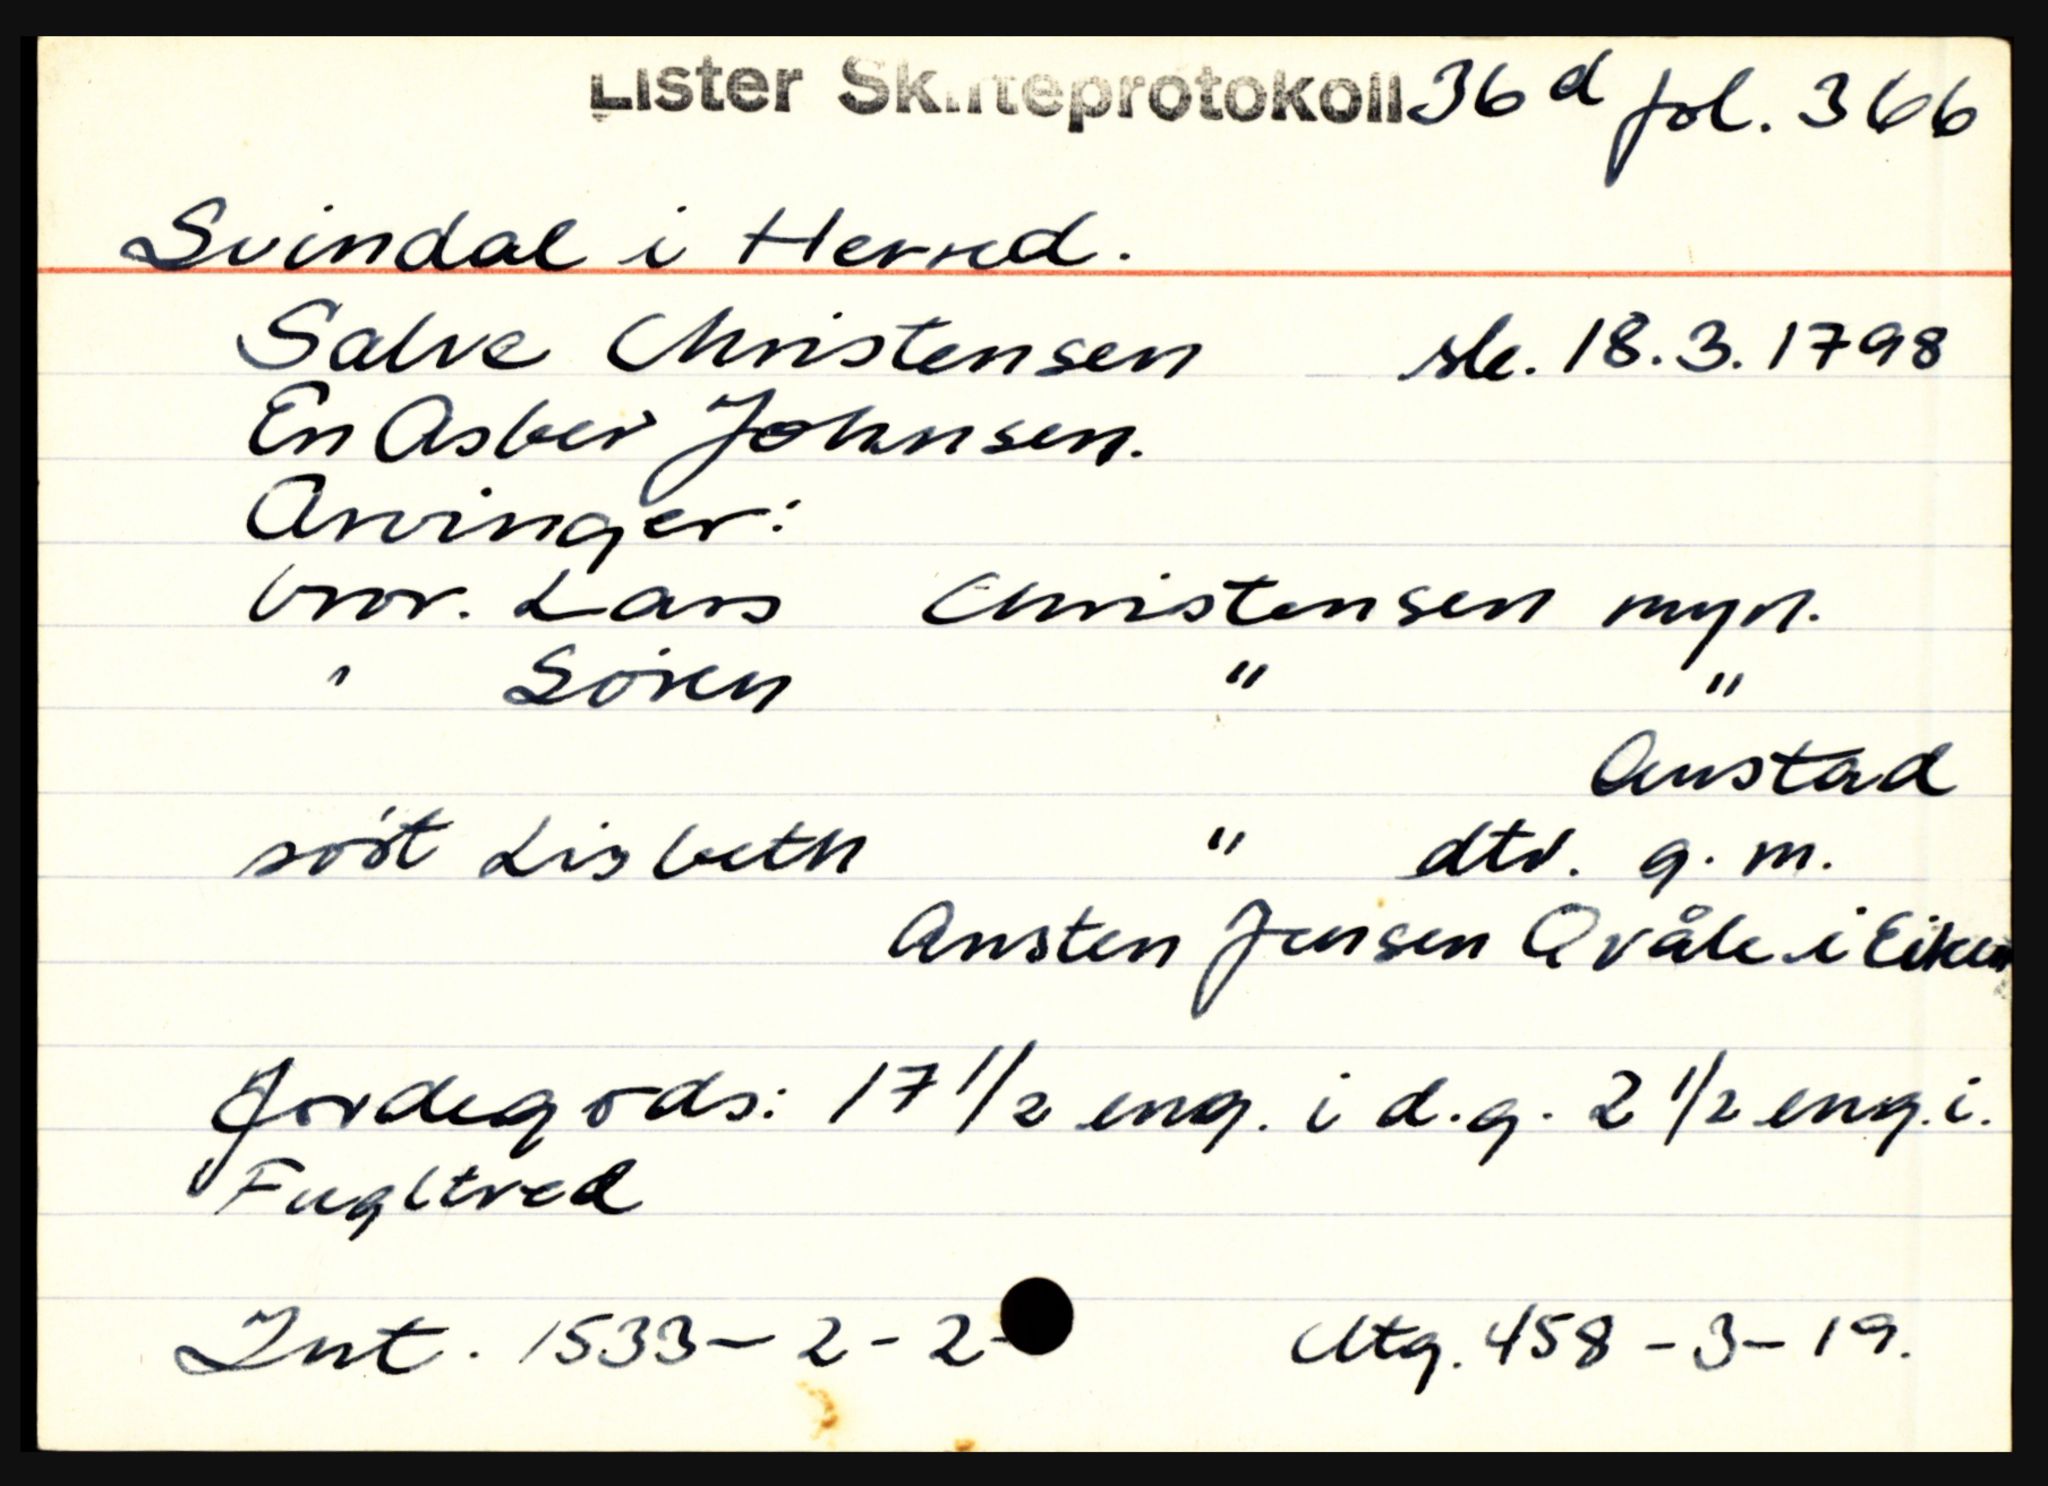 Lister Skifteprotokoll 36 d fol. 366
Svindal i Herred.
Salve Christensen sle. 18.3.1798
En Asber Johnsen.
Arvinger:
bror. Lars Christensen myn.
" Sören " "
Austad
söst Lisbeth " dtr. g. m.
Ansten Jensen Qvåle i Eiken
Jordegods: 17 1/2 eng. i d.g. 2 1/2 eng. i.
Fugltved
Int. 1533-2-2-
Utg. 458-3-19.